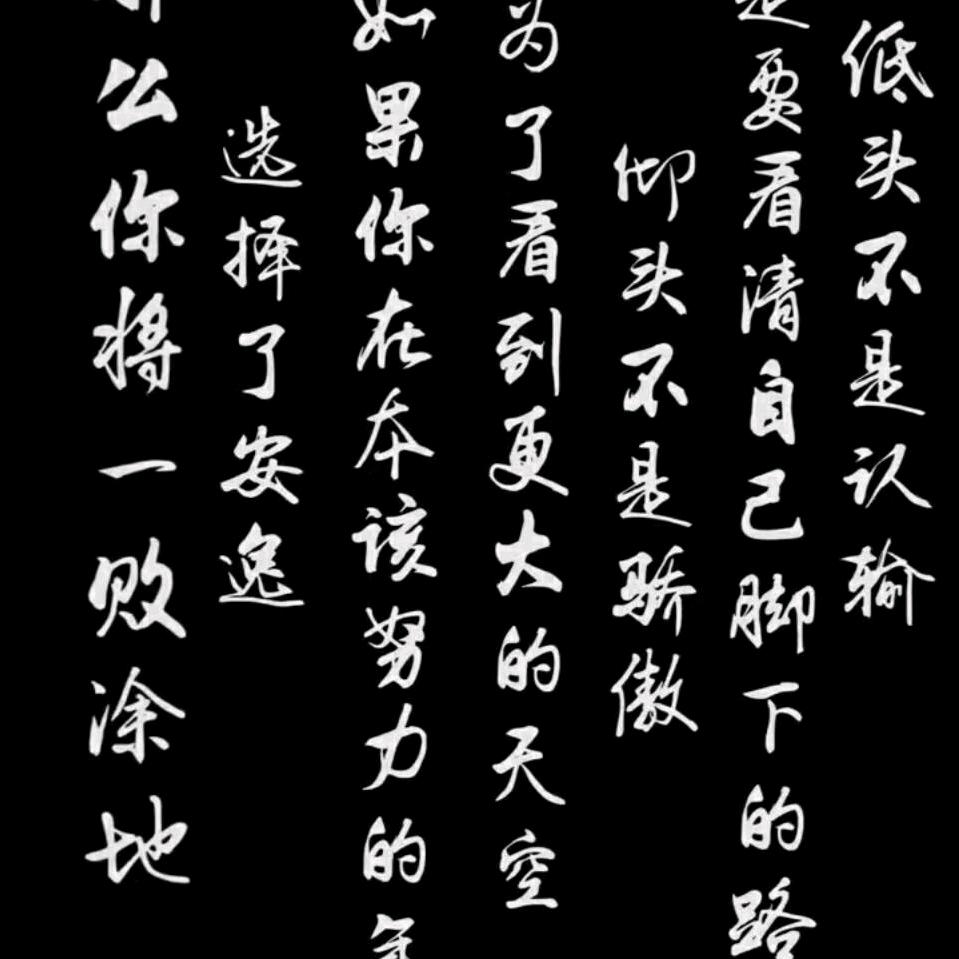 低头不是认输
是要看清自己脚下的路
仰头不是骄傲
为了看到更大的天空
如果你在本该努力的年
选择了安逸
那么你将一败涂地